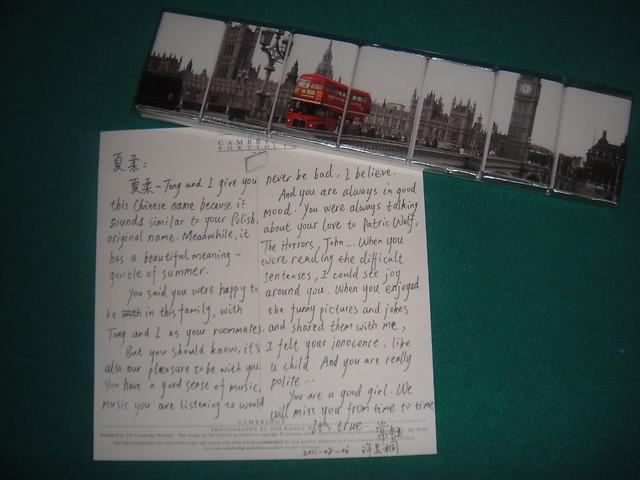 CAMBRIDGE
PORTFOLIO
夏柔：
夏柔-Tong and I give you
this Chinese name because it
sounds similar to your Polish
original name. Meanwhile, it
has a beautiful meaning -
gentle of summer.
You said you were happy to
be in this family, with
Tong and I as your roommates.
But you should know, it's
also our pleasure to be with you.
You have a good sense of music,
music you are listening to would
never be bad, I believe.
And you are always in good
mood. You were always talking
about your love to Patric Wolf,
The Horrors, John... When you
were reading the difficult
sentenses, I could see joy
around you. When you enjoyed
the funny pictures and jokes
and shared them with me,
I felt your innocence, like
a child. And you are really
polite...
You are a good girl. We
will miss you from time to time
It's true.
CAMBRIDGE